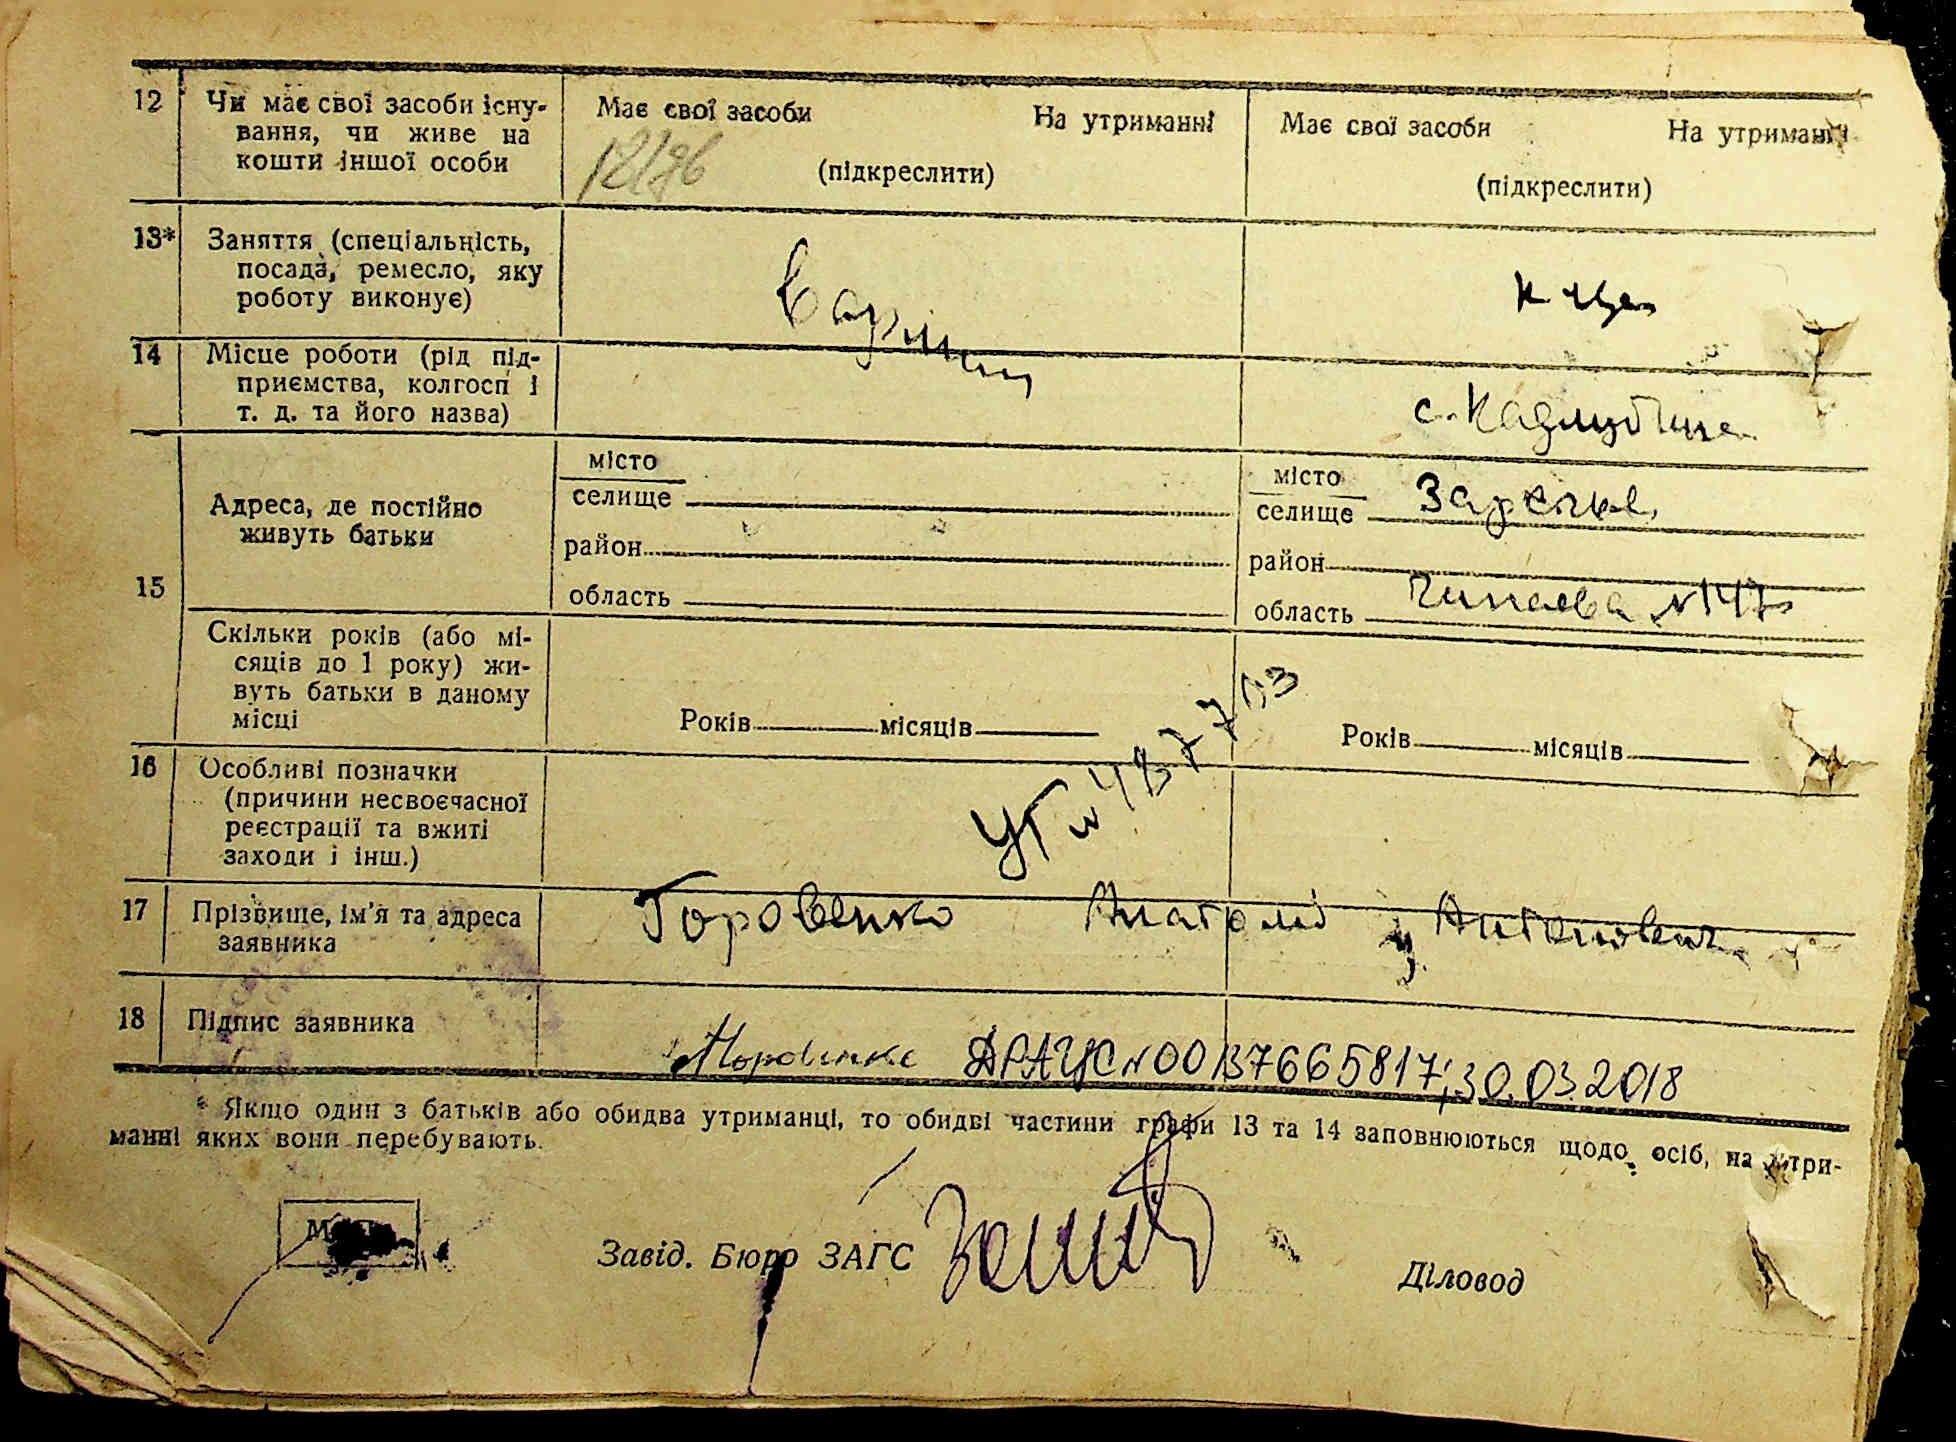 12 Чи має свої засоби існу-
вання, чи живе на
кошти іншої особи
Має свої засоби На утриманні
(підкреслити)
12/96
Має свої засоби На утриманні
(підкреслити)
13* Заняття (спеціальність,
посада, ремесло, яку
роботу виконує)
14 Місце роботи (рід під-
приємства, колгосп і
т. д. та його назва)
15 Адреса, де постійно
живуть батьки
місто
селище
район
область
місто
селище
район
область
Скільки років (або мі-
сяців до 1 року) жи-
вуть батьки в даному
місці
Років місяців
Років місяців
16 Особливі позначки
(причини несвоєчасної
реєстрації та вжиті
заходи і інш.)
17 Прізвище, ім'я та адреса
заявника
Горовенко Анатолій Антонович
18 Підпис заявника
Горовенко ДРАЦС №00137665817; 30.03.2018
* Якщо один з батьків або обидва утриманці, то обидві частини графи 13 та 14 заповнюються щодо осіб, на утри-
манні яких вони перебувають.
Завід. Бюро ЗАГС
Діловод